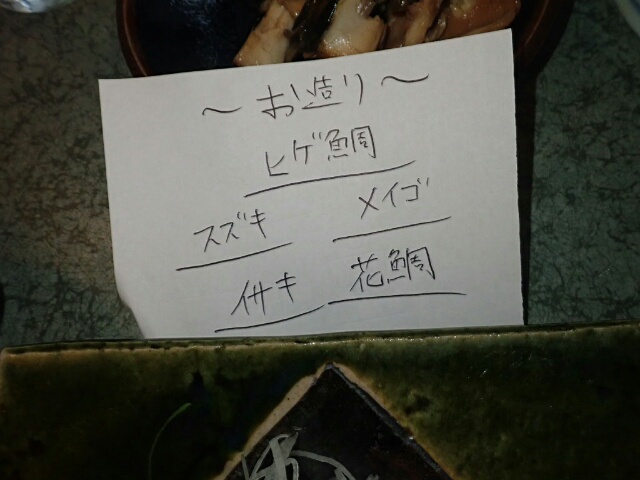 ～お造り～
ヒゲ鯛
スズキ メイゴ
イサキ 花鯛